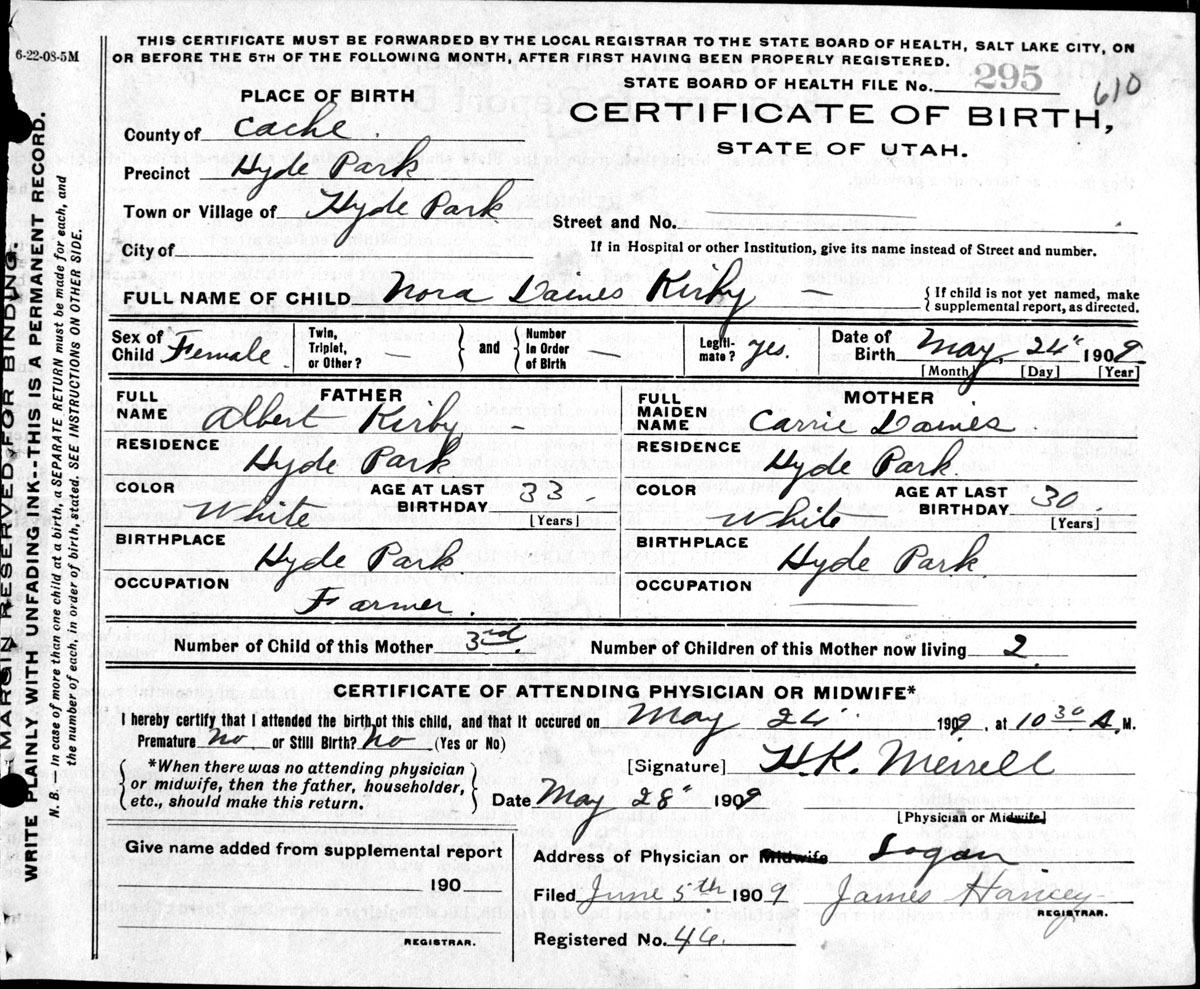 6-22-08-5M
THIS CERTIFICATE MUST BE FORWARDED BY THE LOCAL REGISTRAR TO THE STATE BOARD OF HEALTH, SALT LAKE CITY, ON
OR BEFORE THE 5TH OF THE FOLLOWING MONTH, AFTER FIRST HAVING BEEN PROPERLY REGISTERED.
STATE BOARD OF HEALTH FILE No. 295 610
PLACE OF BIRTH
CERTIFICATE OF BIRTH,
STATE OF UTAH.
County of Cache.
Precinct Hyde Park
Town or Village of Hyde Park
Street and No.
City of
If in Hospital or other Institution, give its name instead of Street and number.
FULL NAME OF CHILD Nora Daines Kirby — { If child is not yet named, make supplemental report, as directed.
Sex of Child Female. Twin, Triplet, or Other? — } and { Number In Order of Birth — Legiti- mate? yes. Date of Birth May, 24" 1909
[Month] [Day] [Year]
FATHER
MOTHER
FULL NAME Albert Kirby -
FULL MAIDEN NAME Carrie Daines
RESIDENCE Hyde Park
RESIDENCE Hyde Park
COLOR White AGE AT LAST BIRTHDAY 33 - [Years]
COLOR White AGE AT LAST BIRTHDAY 30. [Years]
BIRTHPLACE Hyde Park
BIRTHPLACE Hyde Park
OCCUPATION Farmer.
OCCUPATION
Number of Child of this Mother 3rd. Number of Children of this Mother now living 2.
CERTIFICATE OF ATTENDING PHYSICIAN OR MIDWIFE*
I hereby certify that I attended the birth of this child, and that it occured on May 24" 1909, at 10 30 A. M.
Premature No or Still Birth? No (Yes or No)
{ *When there was no attending physician or midwife, then the father, householder, etc., should make this return. }
[Signature] H.K. Merrell
Date May 28" 1909
[Physician or Midwife]
Give name added from supplemental report
190
REGISTRAR.
Address of Physician or Midwife Logan
Filed June 5th 1909 James Hancey
REGISTRAR.
Registered No. 46.
MARGIN RESERVED FOR BINDING
WRITE PLAINLY WITH UNFADING INK--THIS IS A PERMANENT RECORD.
N. B.—In case of more than one child at a birth, a SEPARATE RETURN must be made for each, and
the number of each, in order of birth, stated. SEE INSTRUCTIONS ON OTHER SIDE.